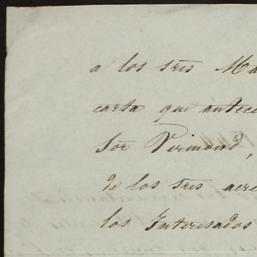 a los sres Ma
carta que antece
Sor Virmond,
de los sres acre
los Interesados